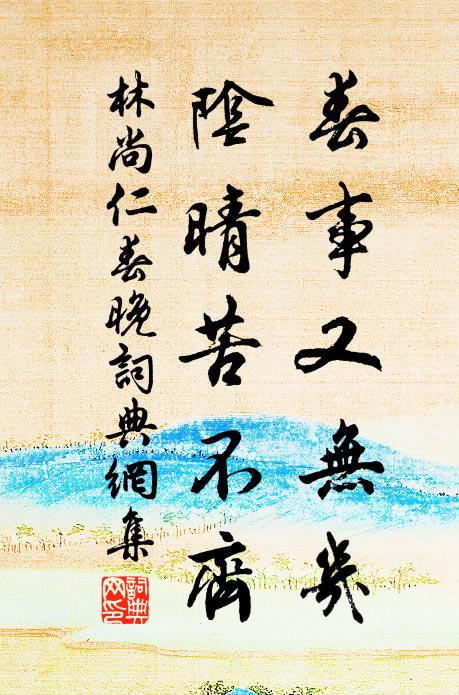 春事又無幾
陰晴苦不齊
林尚仁春晚詞典網集
詞典網印